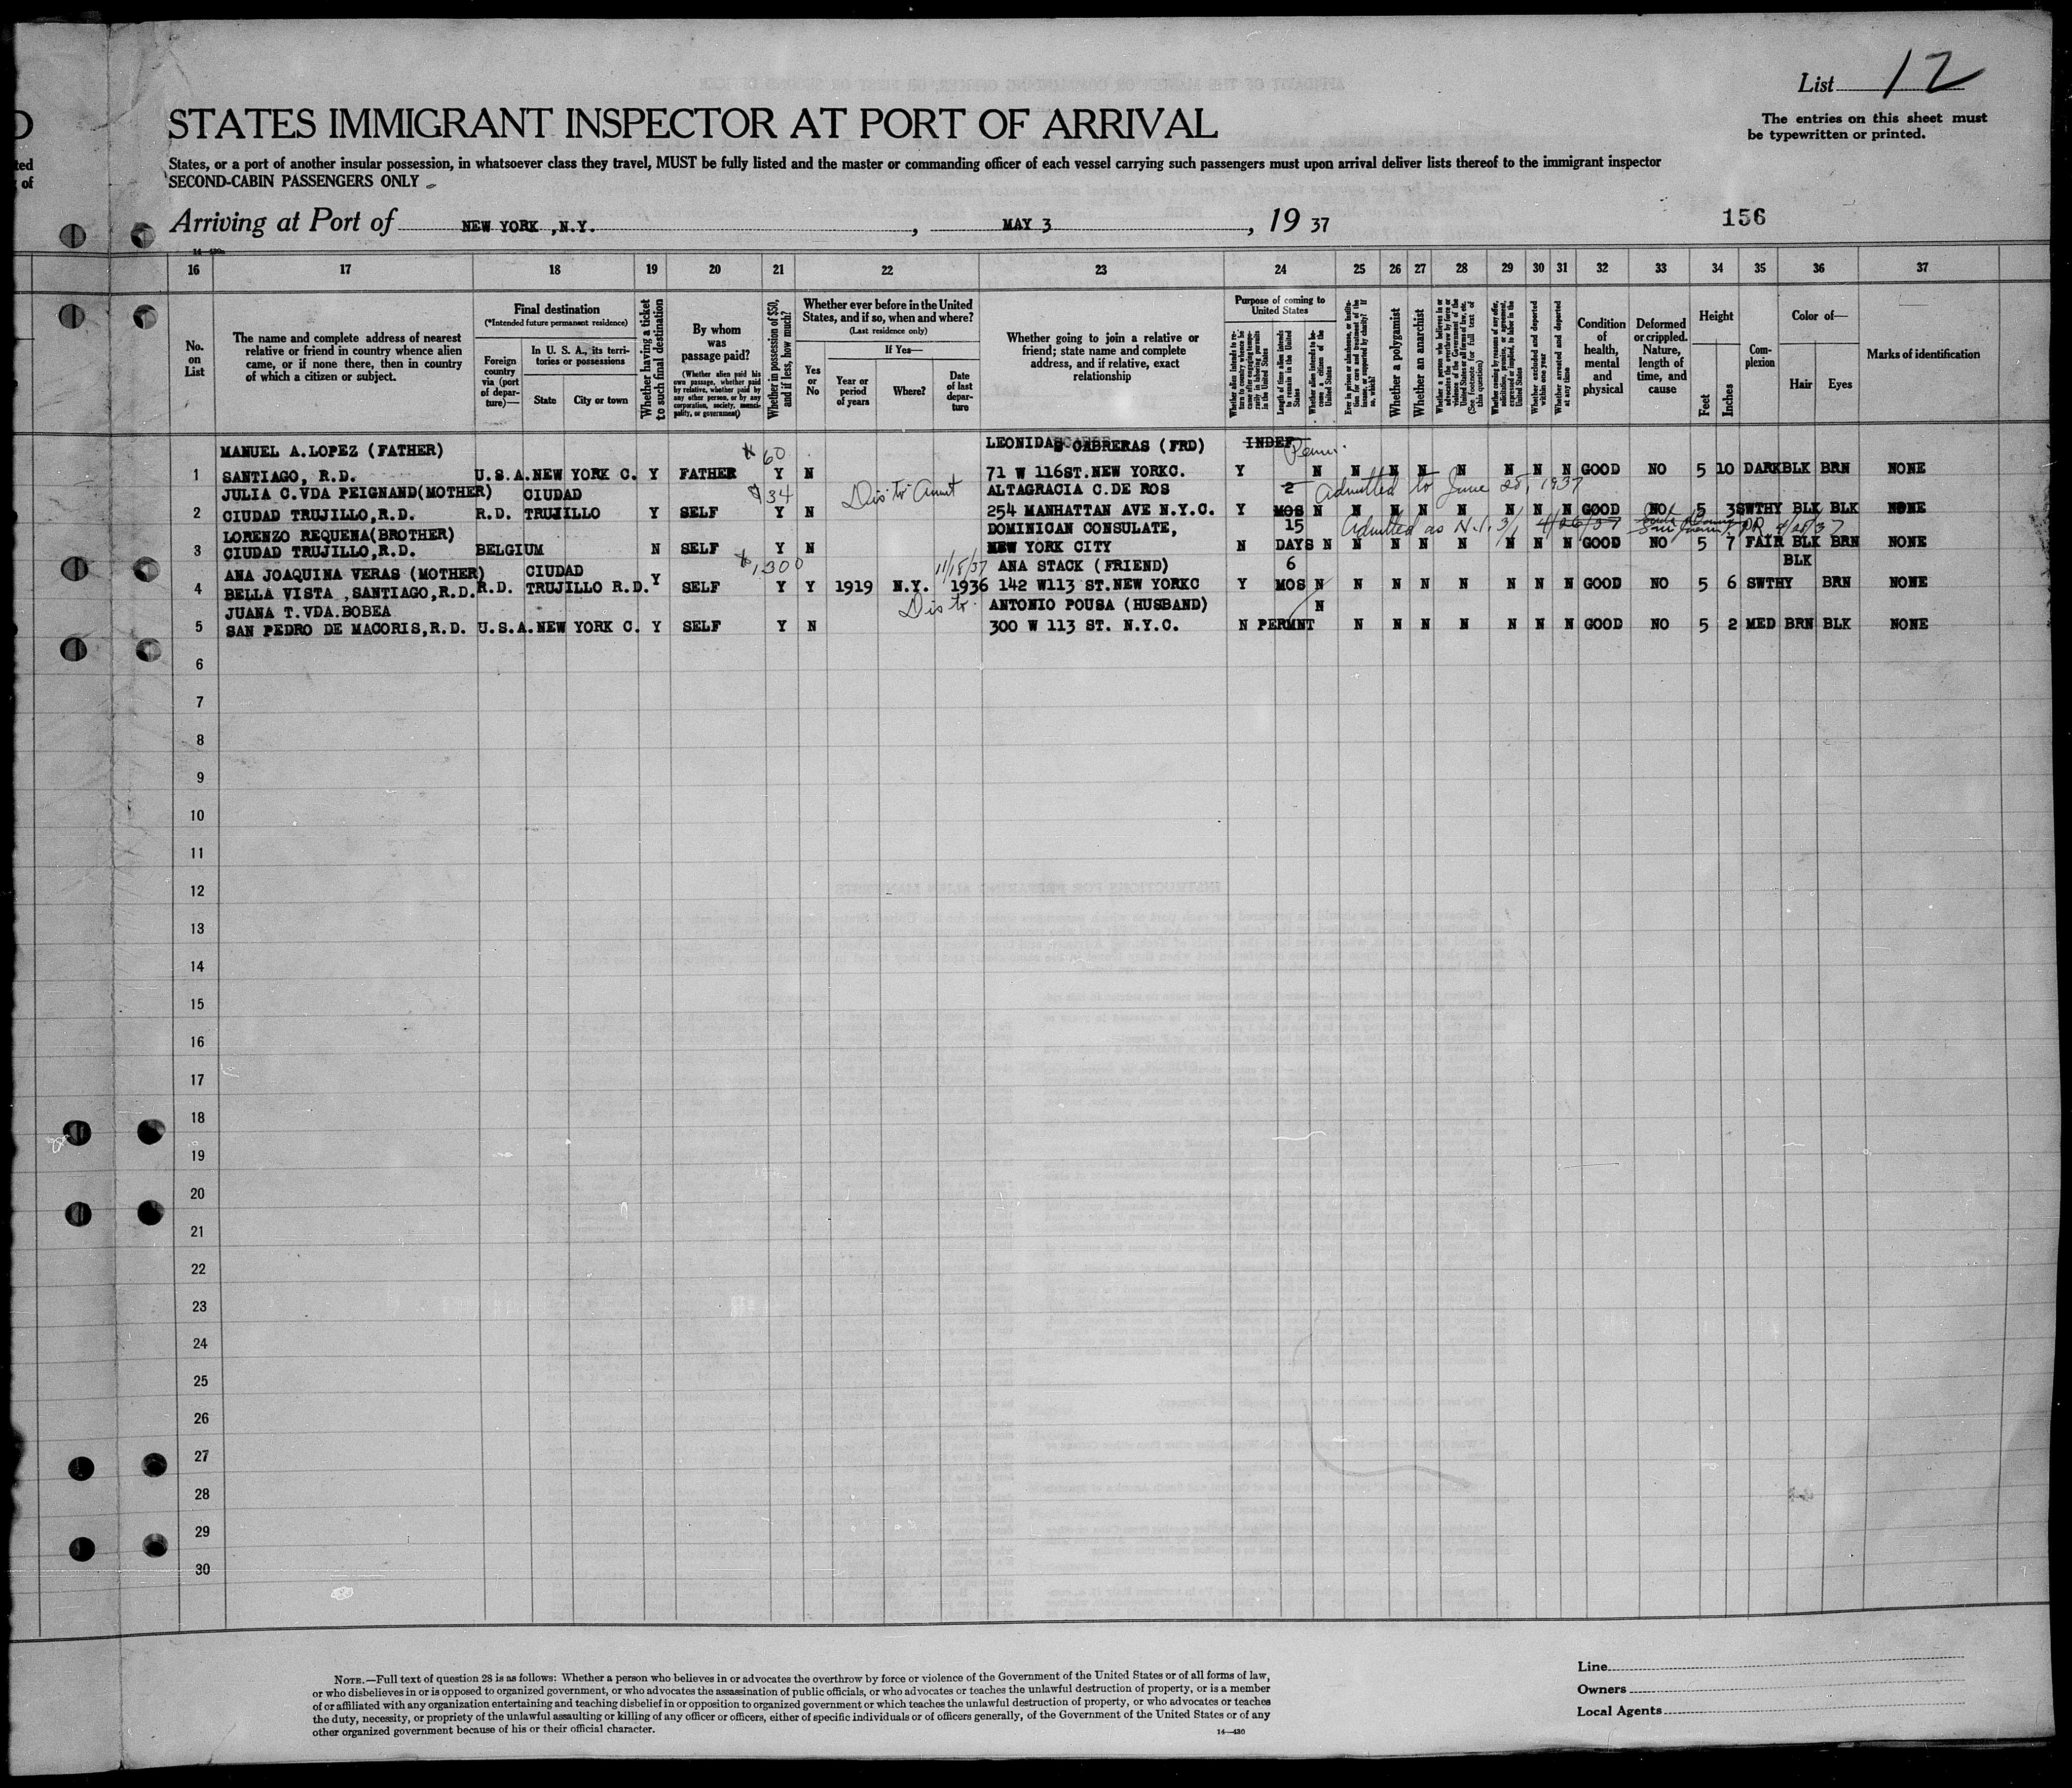 List 12
STATES IMMIGRANT INSPECTOR AT PORT OF ARRIVAL
The entries on this sheet must
be typewritten or printed.
States, or a port of another insular possession, in whatsoever class they travel, MUST be fully listed and the master or commanding officer of each vessel carrying such passengers must upon arrival deliver lists thereof to the immigrant inspector
SECOND-CABIN PASSENGERS ONLY
Arriving at Port of NEW YORK ,N.Y. , MAY 3 , 19 37
156
16 17 18 19 20 21 22 23 24 25 26 27 28 29 30 31 32 33 34 35 36 37
No. on List
The name and complete address of nearest relative or friend in country whence alien came, or if none there, then in country of which a citizen or subject.
Final destination
(*Intended future permanent residence)
Foreign country via (port of departure)—
In U. S. A., its territories or possessions
State City or town
Whether having a ticket to such final destination
By whom was passage paid?
(Whether alien paid his own passage, whether paid by relative, whether paid by any other person, or by any corporation, society, municipality, or government)
Whether in possession of $50, and if less, how much?
Whether ever before in the United States, and if so, when and where?
(Last residence only)
Yes or No
If Yes—
Year or period of years
Where?
Date of last departure
Whether going to join a relative or friend; state name and complete address, and if relative, exact relationship
Purpose of coming to United States
Length of time alien intends to remain in the United States
Whether alien intends to become a citizen of the United States
Whether a polygamist
Whether an anarchist
Whether excluded and deported within one year
Whether arrested and deported at any time
Condition of health, mental and physical
Deformed or crippled. Nature, length of time, and cause
Height
Feet Inches
Complexion
Color of—
Hair Eyes
Marks of identification
MANUEL A.LOPEZ (FATHER) 60 LEONIDAS CABRERAS (FRD) INDEF Perm.
1 SANTIAGO, R.D. U.S.A. NEW YORK C. Y FATHER Y N 71 W 116ST.NEW YORKC. Y N N N N N N N N GOOD NO 5 10 DARK BLK BRN NONE
JULIA C.VDA PEIGNAND(MOTHER) CIUDAD $34 ALTAGRACIA C.DE ROS 2 Admitted to June 25, 1937
2 CIUDAD TRUJILLO,R.D. R.D. TRUJILLO Y SELF Y N 254 MANHATTAN AVE N.Y.C. Y MOS N N N N N N N N GOOD NO 5 3 SWTHY BLK BLK NONE
LORENZO REQUENA(BROTHER) DOMINICAN CONSULATE, 15 Admitted as
3 CIUDAD TRUJILLO,R.D. BELGIUM N SELF Y N NEW YORK CITY N DAYS N N N N N N N N GOOD NO 5 7 FAIR BLK BRN NONE
ANA JOAQUINA VERAS (MOTHER) CIUDAD 1300 11/18/37 ANA STACK (FRIEND) 6 BLK
4 BELLA VISTA ,SANTIAGO,R.D. R.D. TRUJILLO R.D. Y SELF Y Y 1919 N.Y. 1936 142 W113 ST.NEW YORKC Y MOS N N N N N N N N GOOD NO 5 6 SWTHY BRN NONE
JUANA T.VDA.BOBEA ANTONIO POUSA (HUSBAND) N
5 SAN PEDRO DE MACORIS,R.D. U.S.A. NEW YORK C. Y SELF Y N 300 W 113 ST. N.Y.C. N PERMNT N N N N N N N GOOD NO 5 2 MED BRN BLK NONE
6
7
8
9
10
11
12
13
14
15
16
17
18
19
20
21
22
23
24
25
26
27
28
29
30
NOTE.—Full text of question 28 is as follows: Whether a person who believes in or advocates the overthrow by force or violence of the Government of the United States or of all forms of law,
or who disbelieves in or is opposed to organized government, or who advocates the assassination of public officials, or who advocates or teaches the unlawful destruction of property, or is a member
of or affiliated with any organization entertaining and teaching disbelief in or opposition to organized government or which teaches the unlawful destruction of property, or who advocates or teaches
the duty, necessity, or propriety of the unlawful assaulting or killing of any officer or officers, either of specific individuals or of officers generally, of the Government of the United States or of any
other organized government because of his or their official character.
14—430
Line
Owners
Local Agents